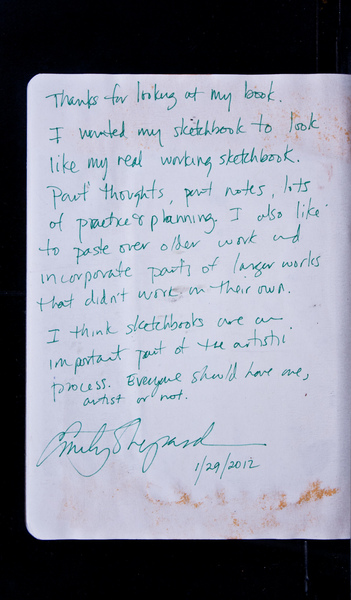 Thanks for looking at my book.
I wanted my sketchbook to look
like my real working sketchbook.
Part thoughts, part notes, lots
of practice & planning. I also like
to paste over older work and
incorporate parts of larger works
that didn't work on their own.
I think sketchbooks are an
important part of the artistic
process. Everyone should have one,
artist or not.
Emily Shepard
1/29/2012